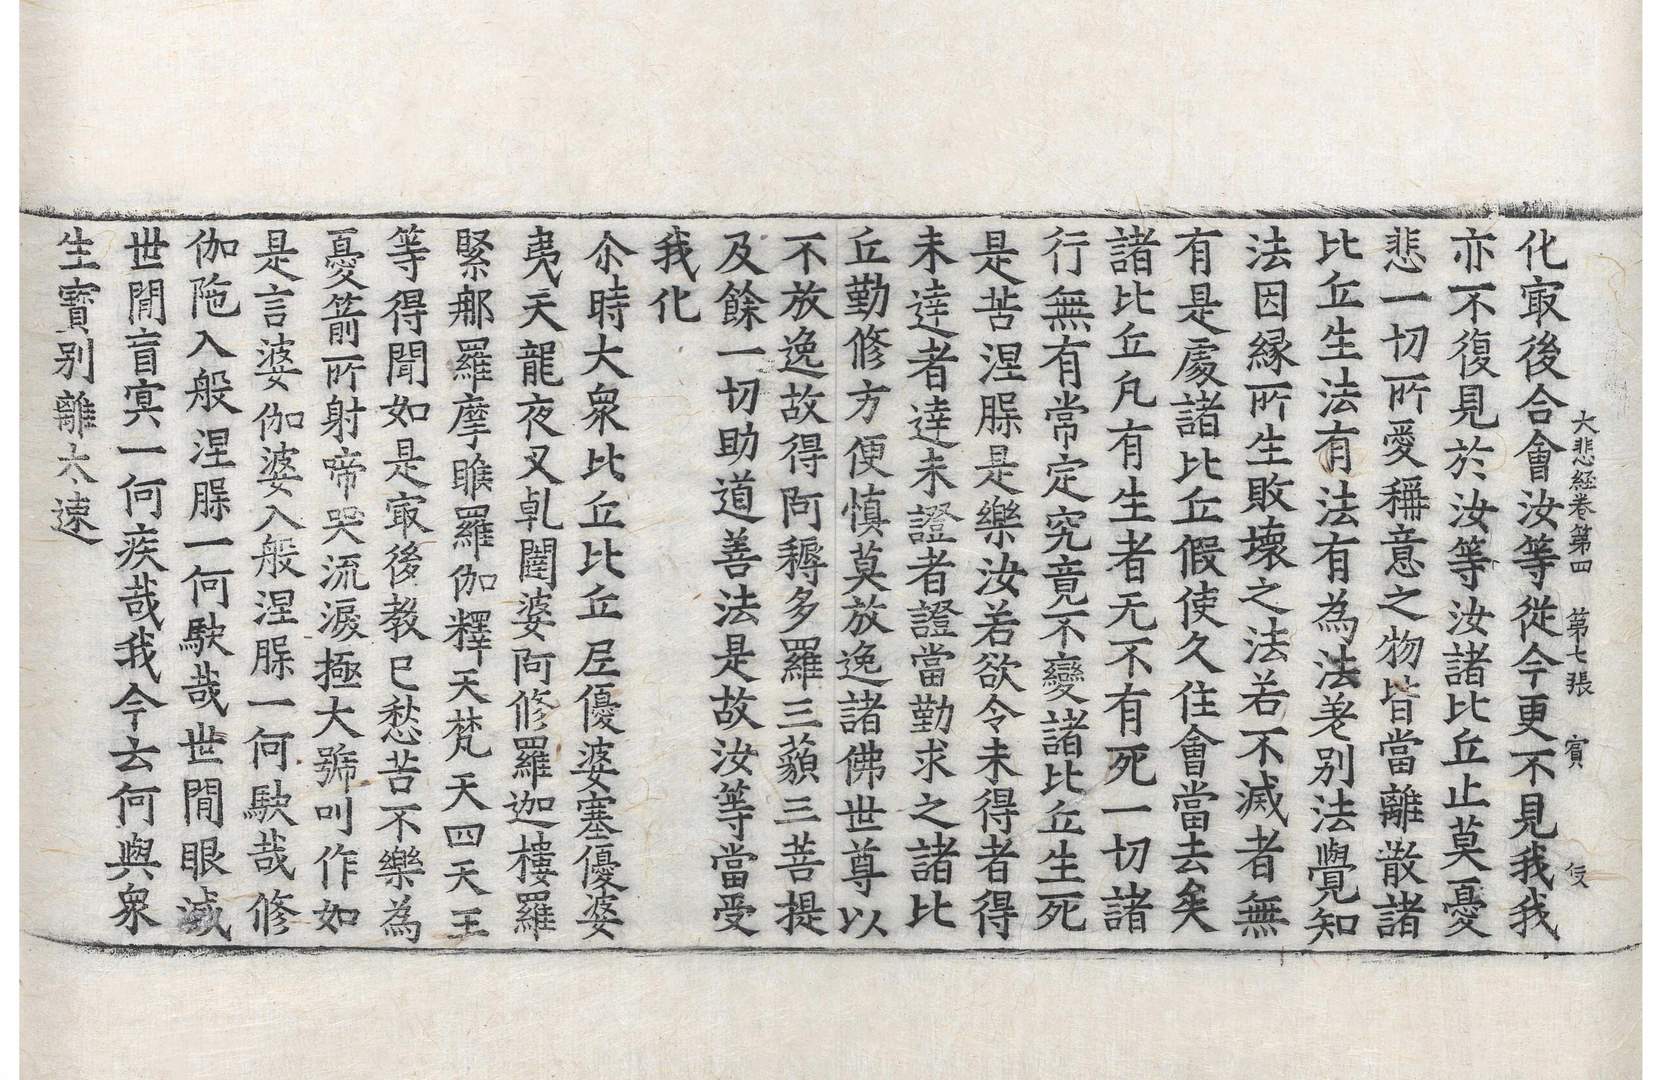 大悲經卷第四　第七張　賓
化㝡後合會汝等從今更不見我我
亦不復見於汝等汝諸比丘止莫憂
悲一切所愛稱意之物皆當離散諸
比丘生法有法有爲法差別法覺知
法因縁所生敗壞之法若不滅者無
有是處諸比丘假使久住會當去矣
諸比丘凡有生者无不有死一切諸
行無有常定究竟不變諸比丘生死
是苦涅槃是樂汝若欲令未得者得
未達者達未證者證當勤求之諸比
丘勤修方便慎莫放逸諸佛世尊以
不放逸故得阿耨多羅三藐三菩提
及餘一切助道善法是故汝等當受
我化
尒時大衆比丘比丘尼優婆塞優婆
夷天龍夜叉乹闥婆阿修羅迦樓羅
緊那羅摩睺羅伽釋天梵天四天王
等得聞如是㝡後教已愁苦不樂為
憂箭所射啼哭流淚極大號叫作如
是言婆伽婆入般涅槃一何駃哉修
伽陁入般涅槃一何駃哉世間眼滅
世間盲冥一何疾哉我今云何與衆
生寳別離太速